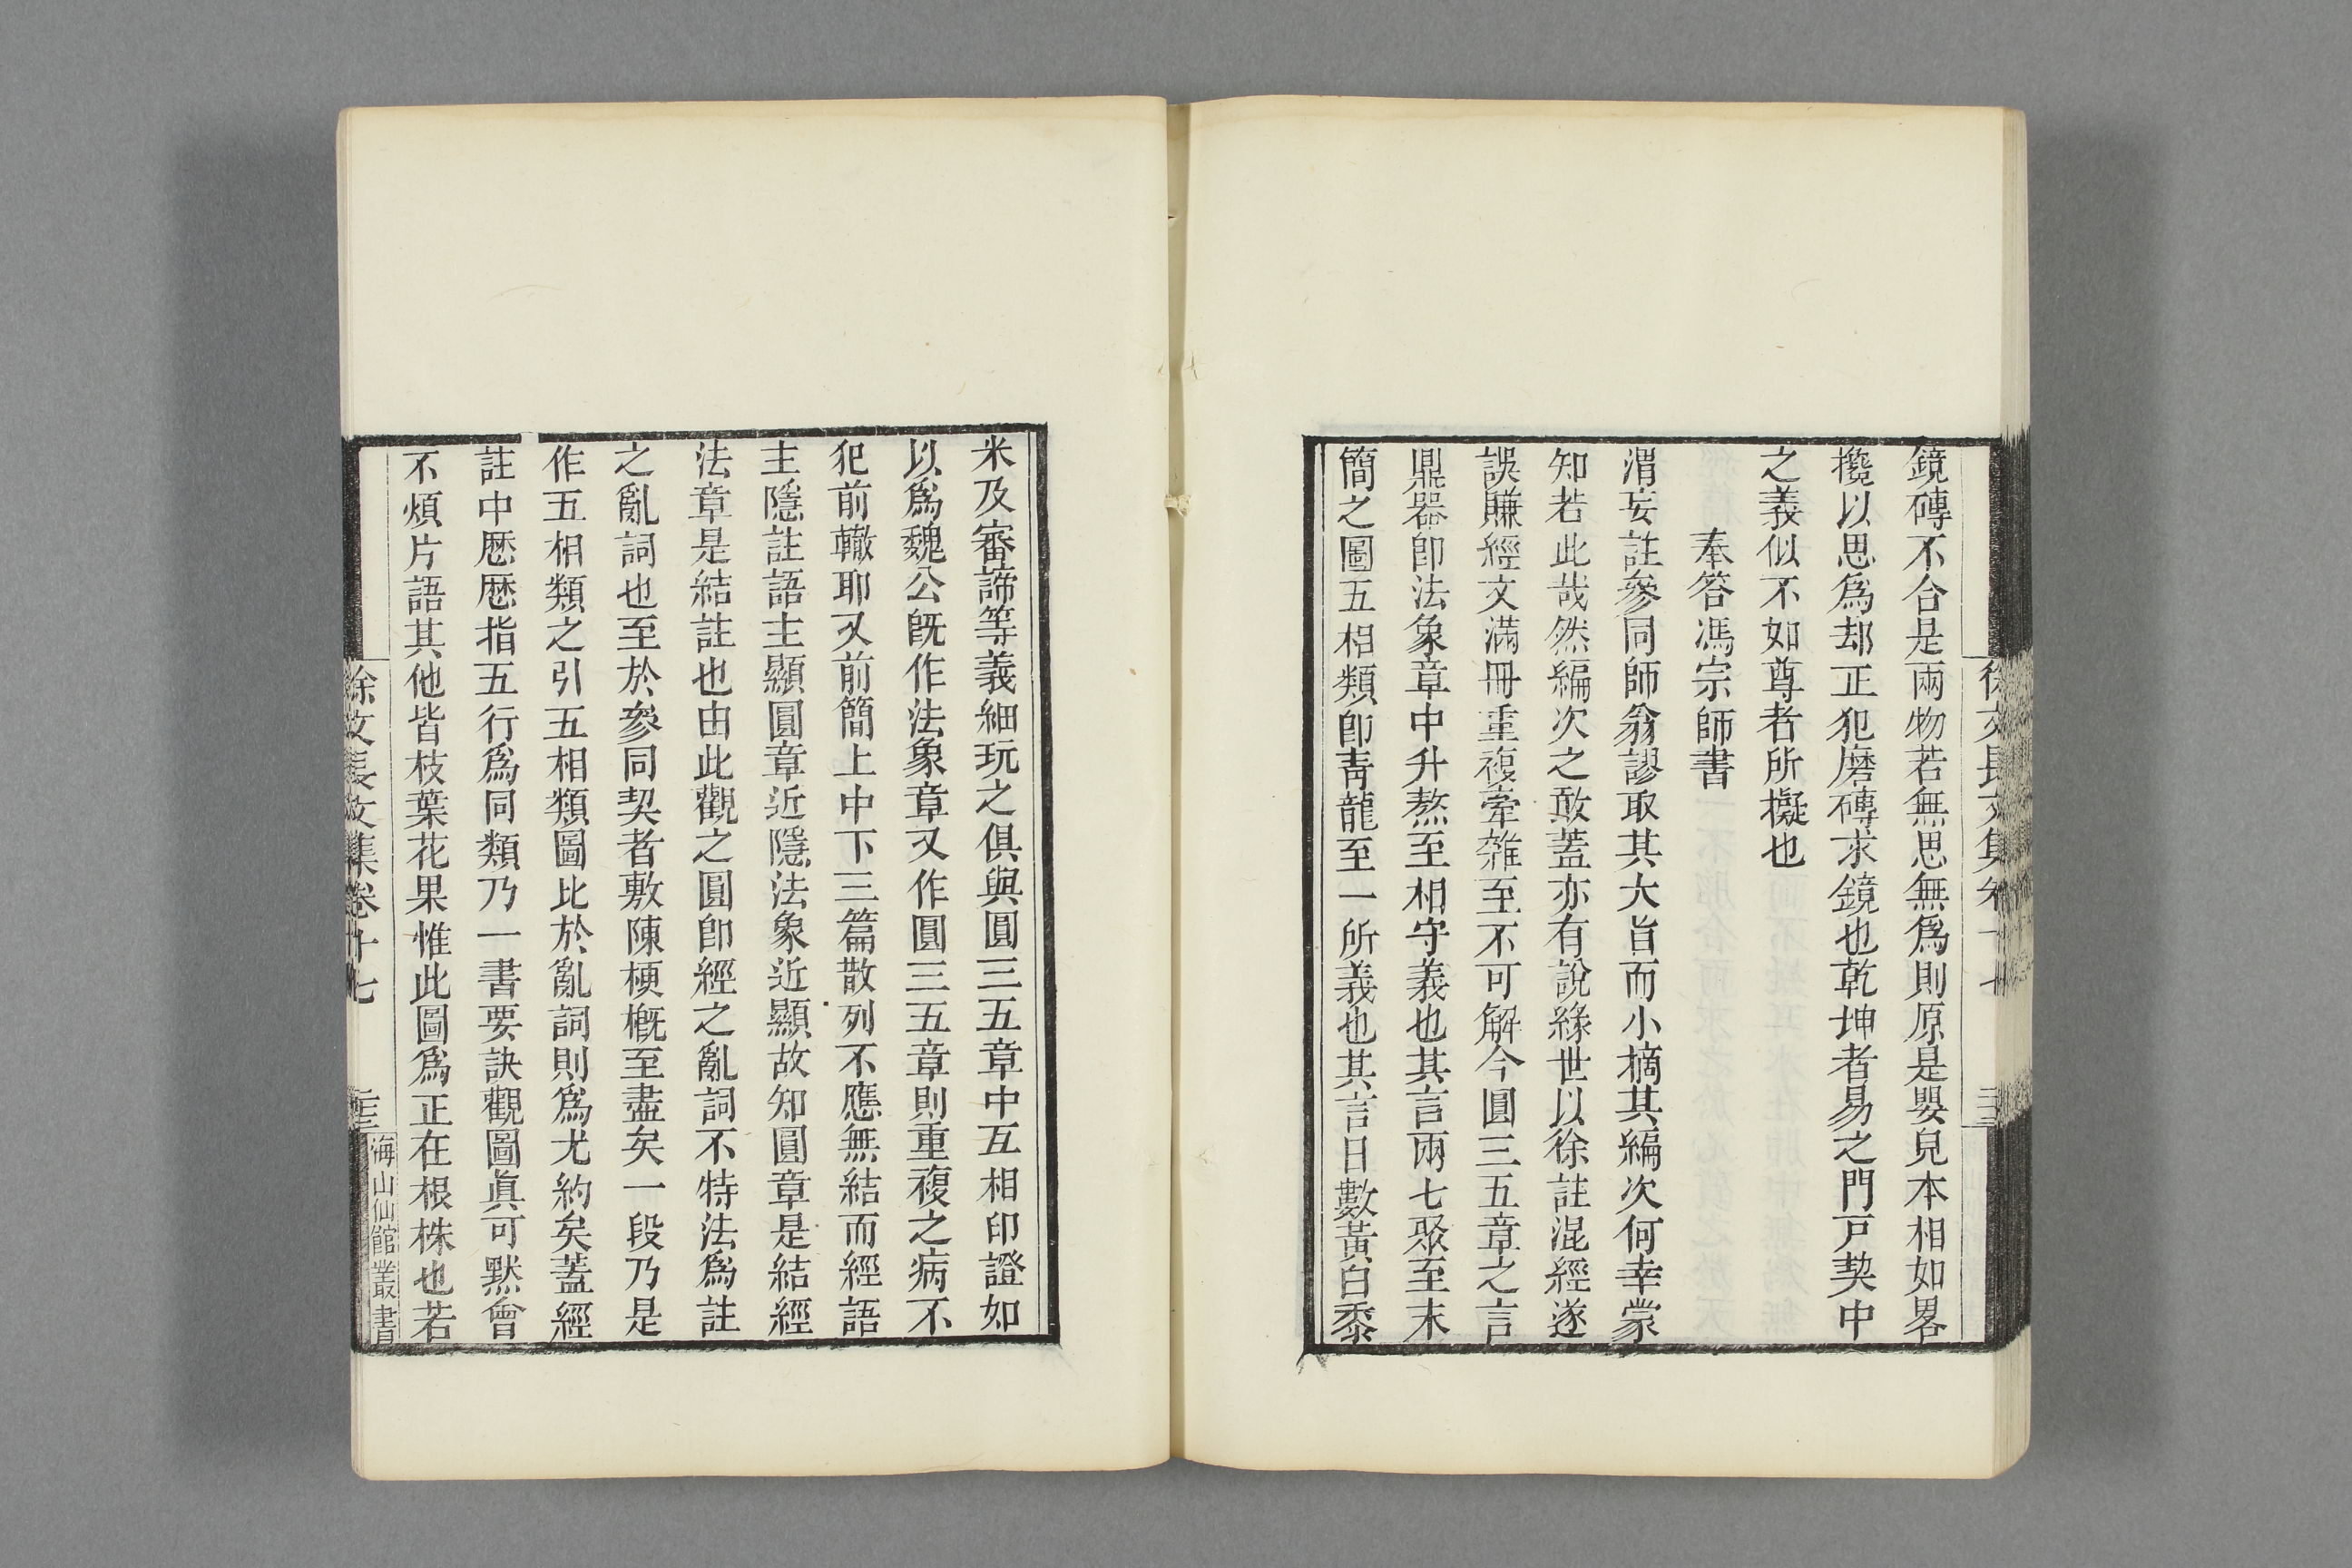 鏡磚不合是兩物若無思無爲則原是嬰兒本相如畧
攙以思爲却正犯磨磚求鏡也乾坤者易之門戸契中
之義似不如尊者所擬也
奉答馮宗師書
渭妄註參同師翁謬取其大旨而小摘其編次何幸蒙
知若此哉然編次之敢蓋亦有說緣世以徐註混經遂
誤賺經文滿冊重複牽雜至不可解今圓三五章之言
鼎器卽法象章中升熬至相守義也其言兩七聚至末
簡之圖五相類卽靑龍至一所義也其言日數黃白黍
徐文長文集卷十七
米及審諦等義細玩之俱與圓三五章中互相印證如
以爲魏公既作法象章又作圓三五章則重複之病不
犯前轍耶又前簡上中下三篇散列不應無結而經語
主隱註語主顯圓章近隱法象近顯故知圓章是結經
法章是結註也由此觀之圓卽經之亂詞不特法爲註
之亂詞也至於參同契者敷陳梗槪至盡矣一段乃是
作五相類之引五相類圖比於亂詞則爲尤約矣蓋經
註中歷歷指五行爲同類乃一書要訣觀圖眞可默會
不煩片語其他皆枝葉花果惟此圖爲正在根株也若
徐文長文集卷十七
海山仙館叢書